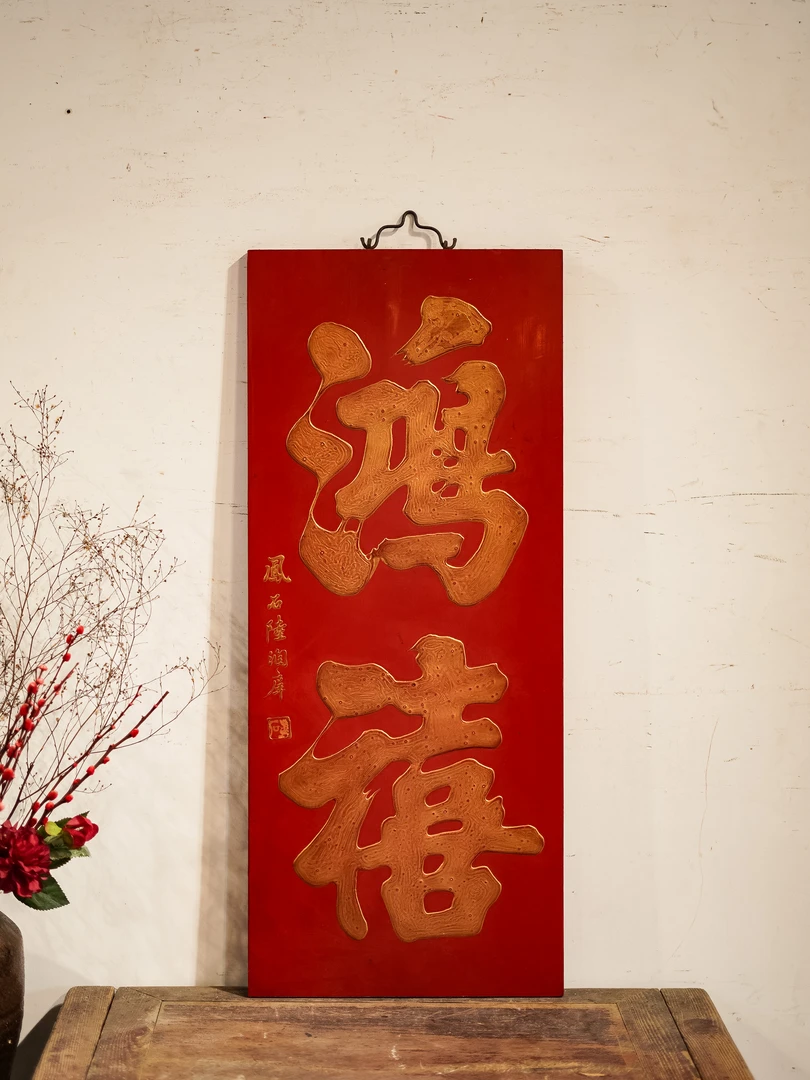 鴻禧
鳳石陸潤庠